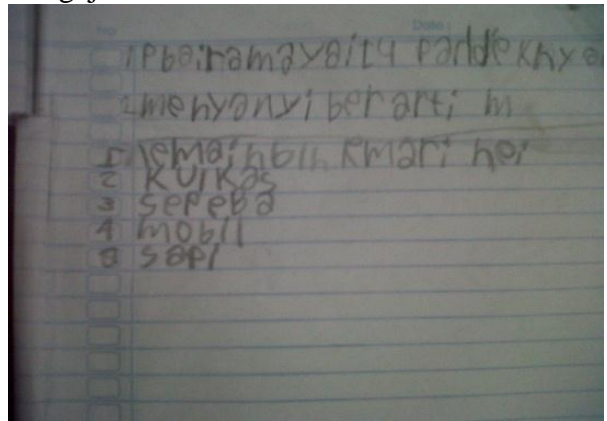 No Date:
1 pbairamayaitu paddekny
2 menyanyi berarti m
1 lemai kmari
2 Kulkas
3 sepeba
4 mobil
5 sapi